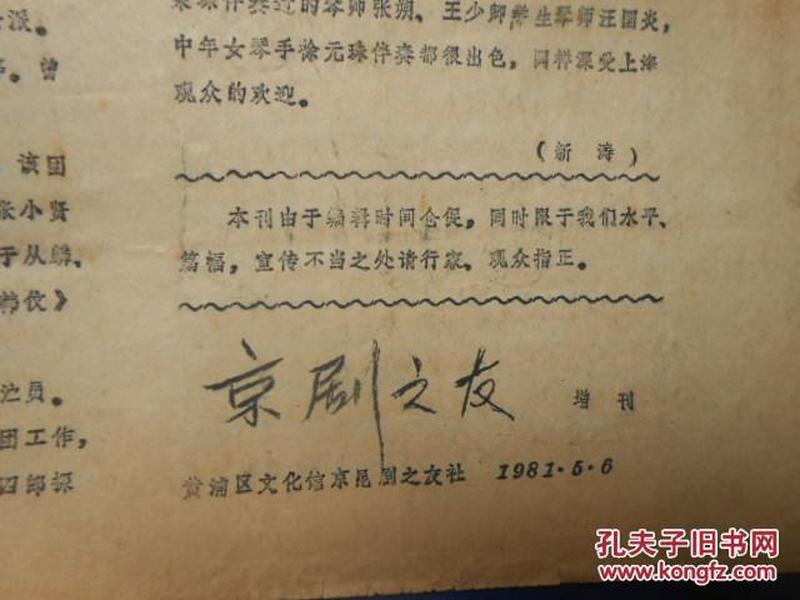 派。
曾
该团
张小贤
于从麟、
》
员。
团工作，
四郎探
伴奏过的琴师张朔、王少卿学生琴师汪国炎，
中年女琴手徐元珠伴奏都很出色，同样深受上海
观众的欢迎。
（新涛）
本刊由于编辑时间仓促，同时限于我们水平、
篇幅，宣传不当之处请行家、观众指正。
京剧之友 增刊
黄浦区文化馆京昆剧之友社 1981·5·6
孔夫子旧书网
www.kongfz.com